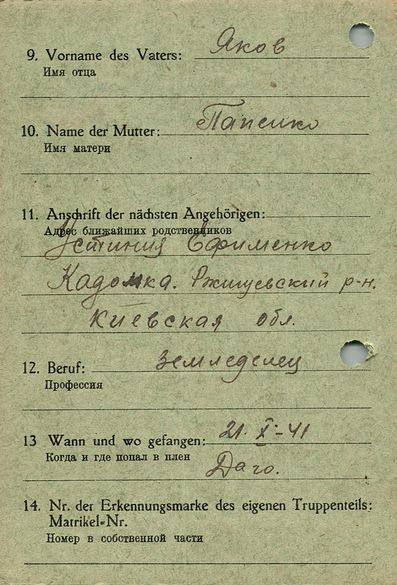 9. Vorname des Vaters: Яков
Имя отца
10. Name der Mutter: Папенко
Имя матери
11. Anschrift der nächsten Angehörigen:
Адрес ближайших родственников
Устиния Ефименко
Кадомка. Ржищевский р-н.
Киевская обл.
12. Beruf: Земледелец
Профессия
13 Wann und wo gefangen: 21. X-41
Когда и где попал в плен
Даго.
14. Nr. der Erkennungsmarke des eigenen Truppenteils:
Matrikel-Nr.
Номер в собственной части